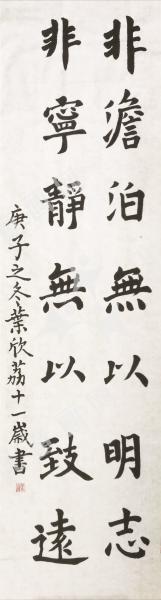 非澹泊無以明志
非寧靜無以致遠
庚子之冬葉欣荔十一歲書